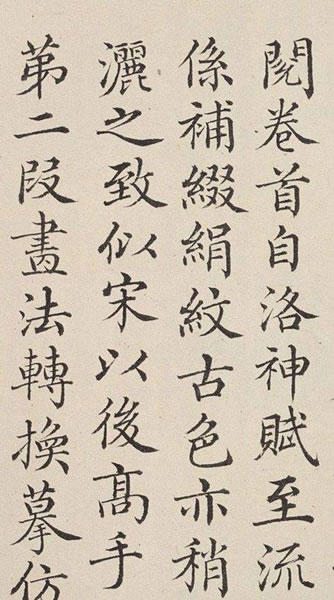 閱卷首自洛神賦至流
係補綴絹紋古色亦稍
灑之致似宋以後高手
苐二段畫法轉換摹仿